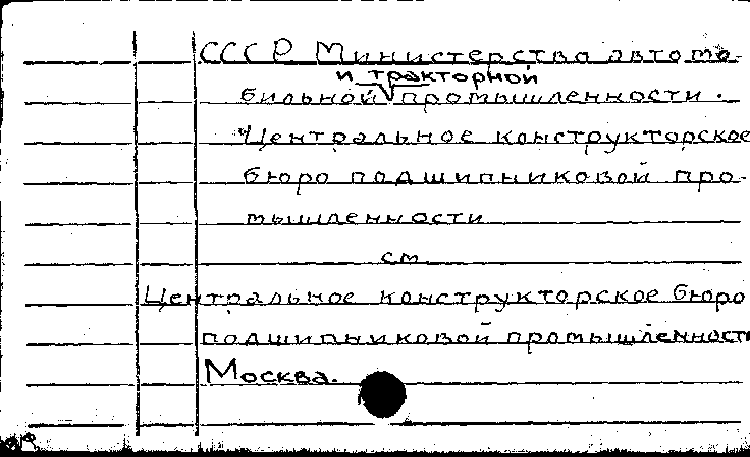 СССР Министерство автомо-
и тракторной
бильной промышленности.
"Центральное конструкторское
бюро подшипниковой про-
мышленности
см
Центральное конструкторское бюро
подшипниковой промышленности
Москва.